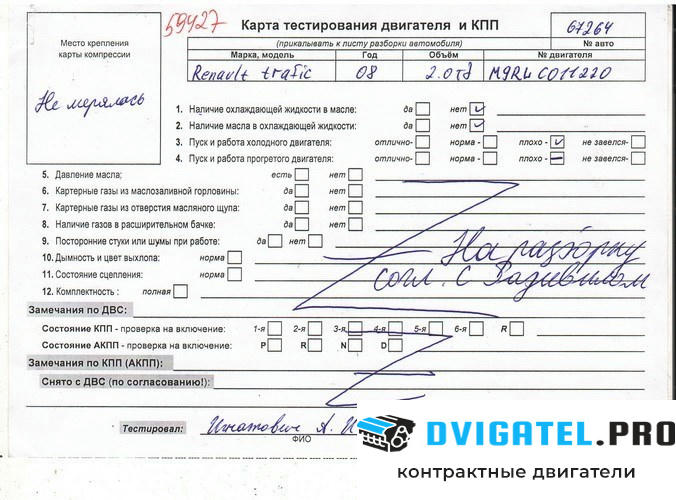 59427
Карта тестирования двигателя и КПП
67264
(прикалывать к листу разборки автомобиля)
№ авто
Место крепления
карты компрессии
Не мерялось
Марка, модель Год Объём № двигателя
Renault trafic 08 2.0td M9RU C011220
1. Наличие охлаждающей жидкости в масле: да нет
2. Наличие масла в охлаждающей жидкости: да нет
3. Пуск и работа холодного двигателя: отлично- норма- плохо- не завелся-
4. Пуск и работа прогретого двигателя: отлично- норма- плохо- не завелся-
5. Давление масла; есть нет
6. Картерные газы из маслозаливной горловины: да нет
7. Картерные газы из отверстия масляного щупа: да нет
8. Наличие газов в расширительном бачке: да нет
9. Посторонние стуки или шумы при работе: да нет
На разборку
10. Дымность и цвет выхлопа: норма
согл. с Радивилом
11. Состояние сцепления: норма
12. Комплектность : полная
Замечания по ДВС:
Состояние КПП - проверка на включение: 1-я 2-я 3-я 4-я 5-я 6-я R
Состояние АКПП - проверка на включение: P R N D
Замечания по КПП (АКПП):
Снято с ДВС (по согласованию!):
Тестировал: Игнатович А. И
ФИО
DVIGATEL.PRO
контрактные двигатели